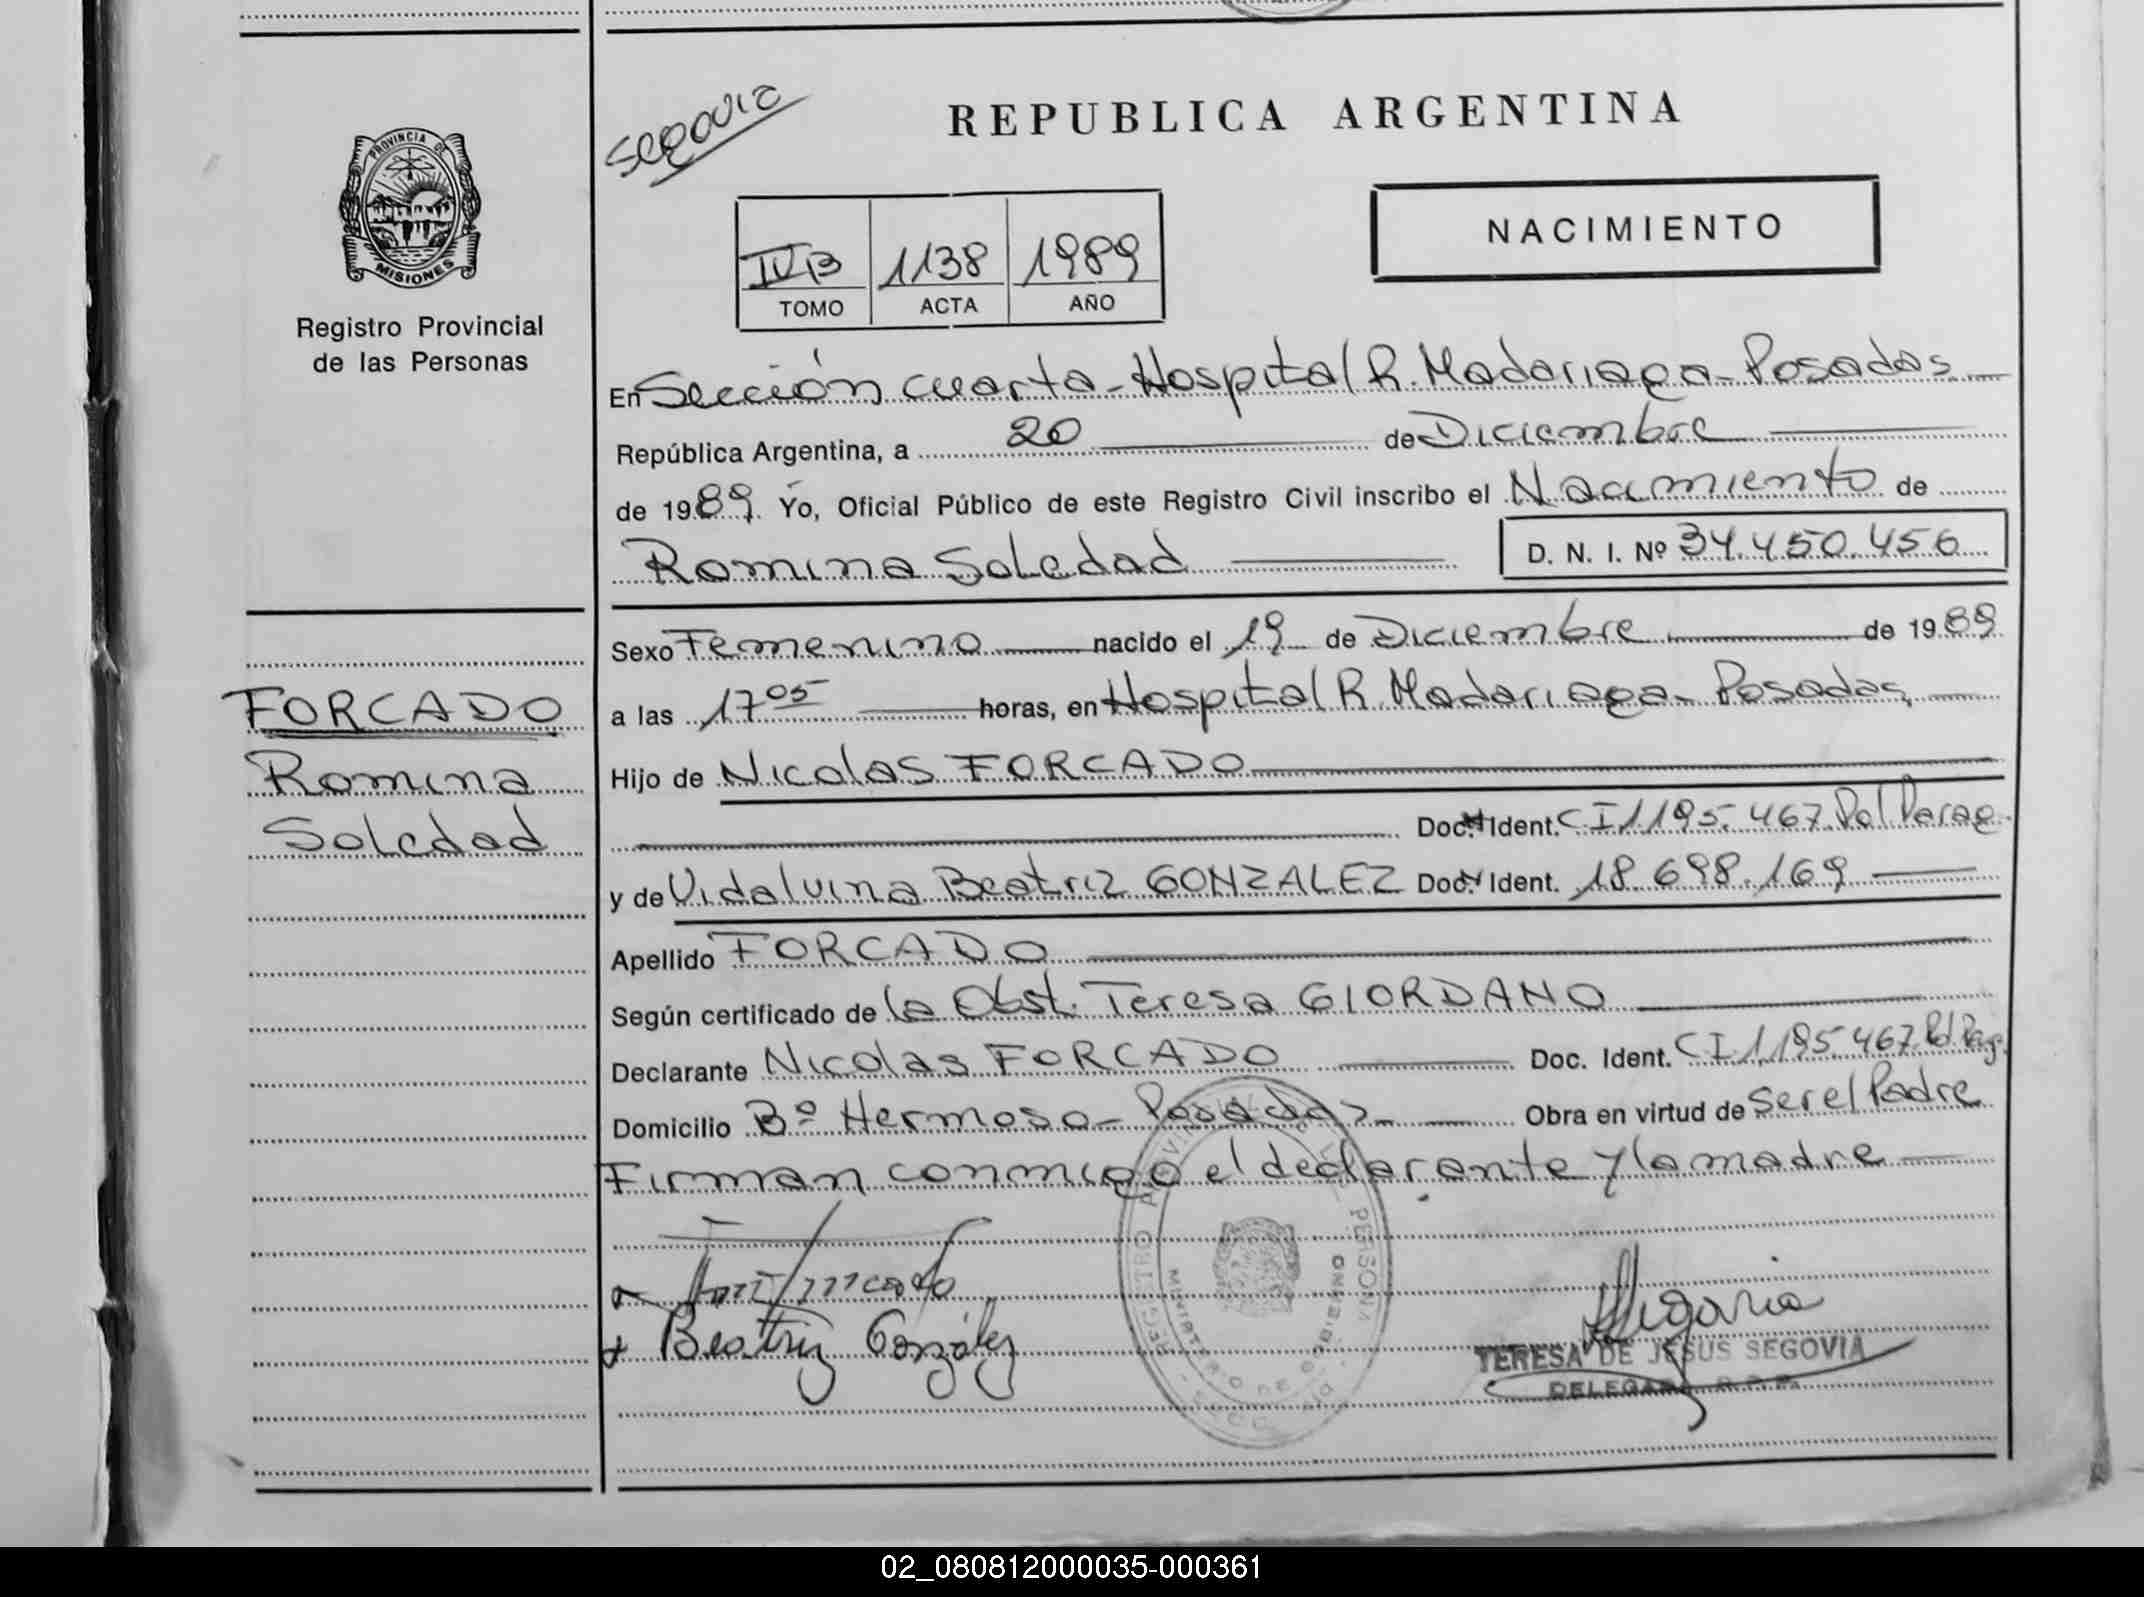 Segovia
REPUBLICA ARGENTINA
PROVINCIA DE
MISIONES
Registro Provincial
de las Personas
IVB 1138 1989
TOMO ACTA AÑO
NACIMIENTO
En Sección cuarta - Hospital R. Madariaga - Posadas
República Argentina, a 20 de Diciembre
de 1989. Yo, Oficial Público de este Registro Civil inscribo el Nacimiento de
Romina Soledad D. N. I. Nº 34.450.456
FORCADO
Romina
Soledad
Sexo Femenino nacido el 19 de Diciembre de 1989
a las 17 05 horas, en Hospital R. Madariaga - Posadas
Hijo de Nicolas FORCADO
Doc. Ident. CI 1195.467. Pol Parag
y de Vidalvina Beatriz GONZALEZ Doc. Ident. 18.698.169
Apellido FORCADO
Según certificado de la Obst. Teresa GIORDANO
Declarante Nicolas FORCADO Doc. Ident. CI 1,195.467. Pol.
Domicilio Bº Hermoso - Posadas - Obra en virtud de ser el Padre
Firman conmigo el declarante y la madre
Beatriz González
Segovia
TERESA DE JESUS SEGOVIA
DELEGADA R.P.P.
02_080812000035-000361